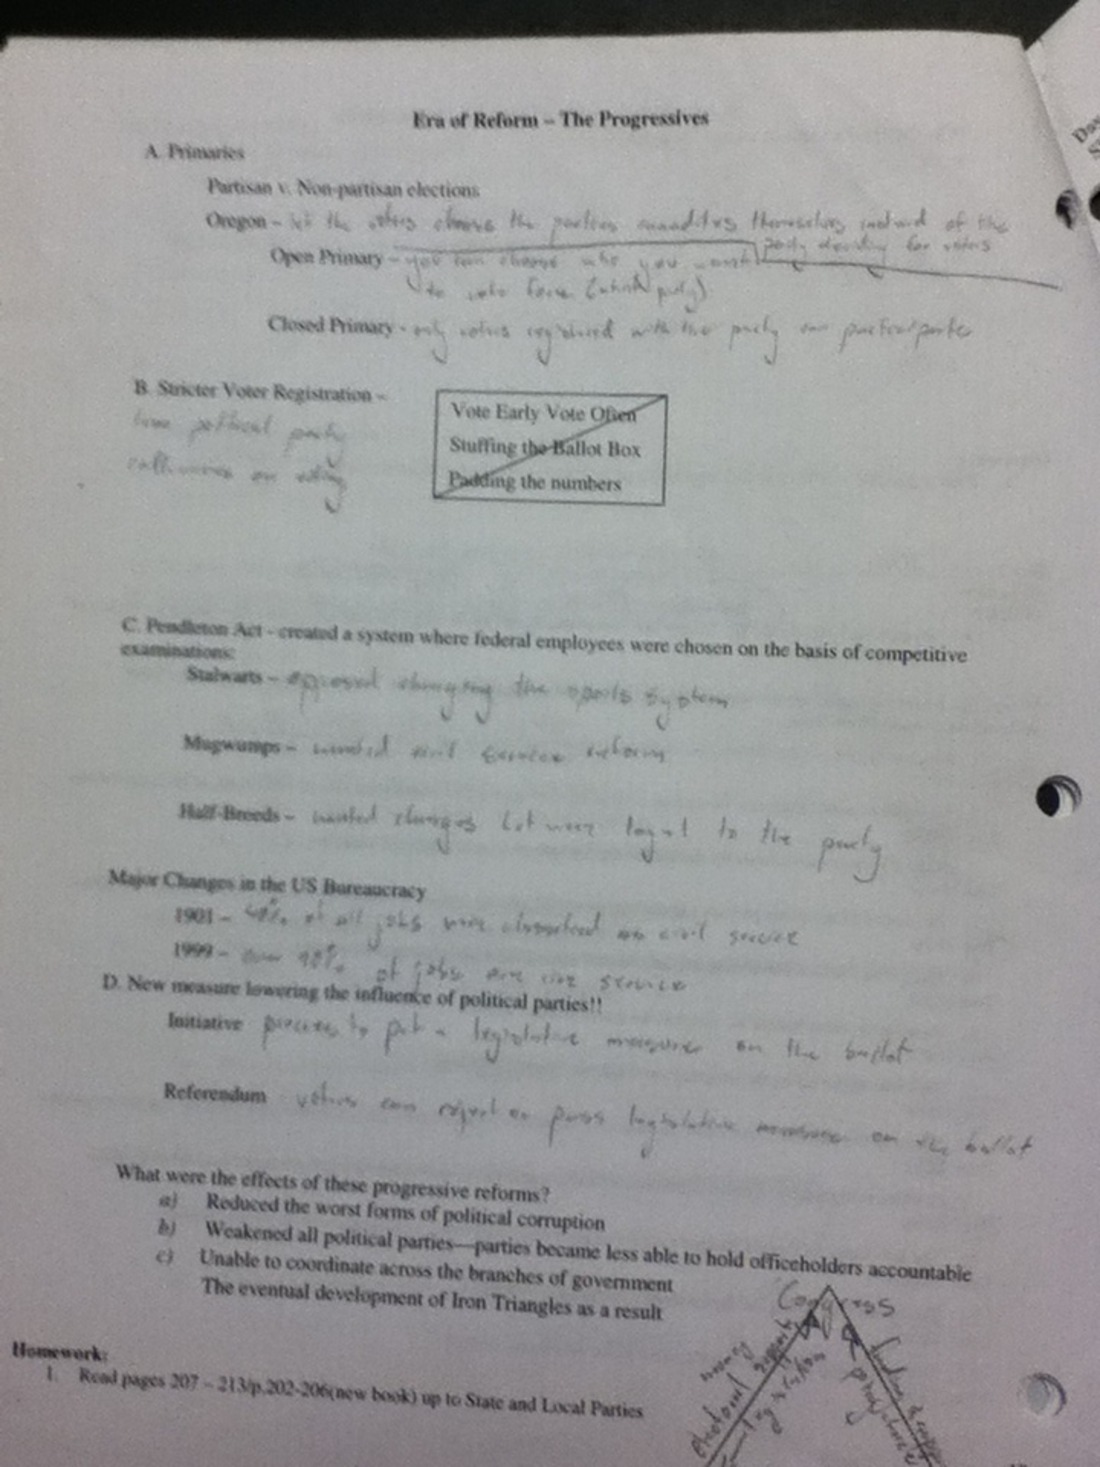 Era of Reform – The Progressives
A. Primaries
Partisan v. Non-partisan elections
Oregon – let the voters choose the parties themselves instead of the
party deciding for voters
Open Primary – you can choose who you want
to vote
Closed Primary - only voters registered with the party can
B. Stricter Voter Registration –
political party
on voting
Vote Early Vote Often
Stuffing the Ballot Box
Padding the numbers
C. Pendleton Act - created a system where federal employees were chosen on the basis of competitive
examinations:
Stalwarts – opposed changing the spoils system
Mugwumps – wanted civil service reform
Half-Breeds – wanted changes but were loyal to the party
Major Changes in the US Bureaucracy
1901 – of all jobs were classified as civil service
1999 – over 90% of jobs are service
D. New measure lowering the influence of political parties!!
Initiative process to put a legislative measure on the ballot
Referendum voters can reject or pass legislative measures on the ballot
What were the effects of these progressive reforms?
a) Reduced the worst forms of political corruption
b) Weakened all political parties—parties became less able to hold officeholders accountable
c) Unable to coordinate across the branches of government
The eventual development of Iron Triangles as a result
Congress
money
electoral support
legislation
Homework:
1. Read pages 207 – 213/p.202-206(new book) up to State and Local Parties